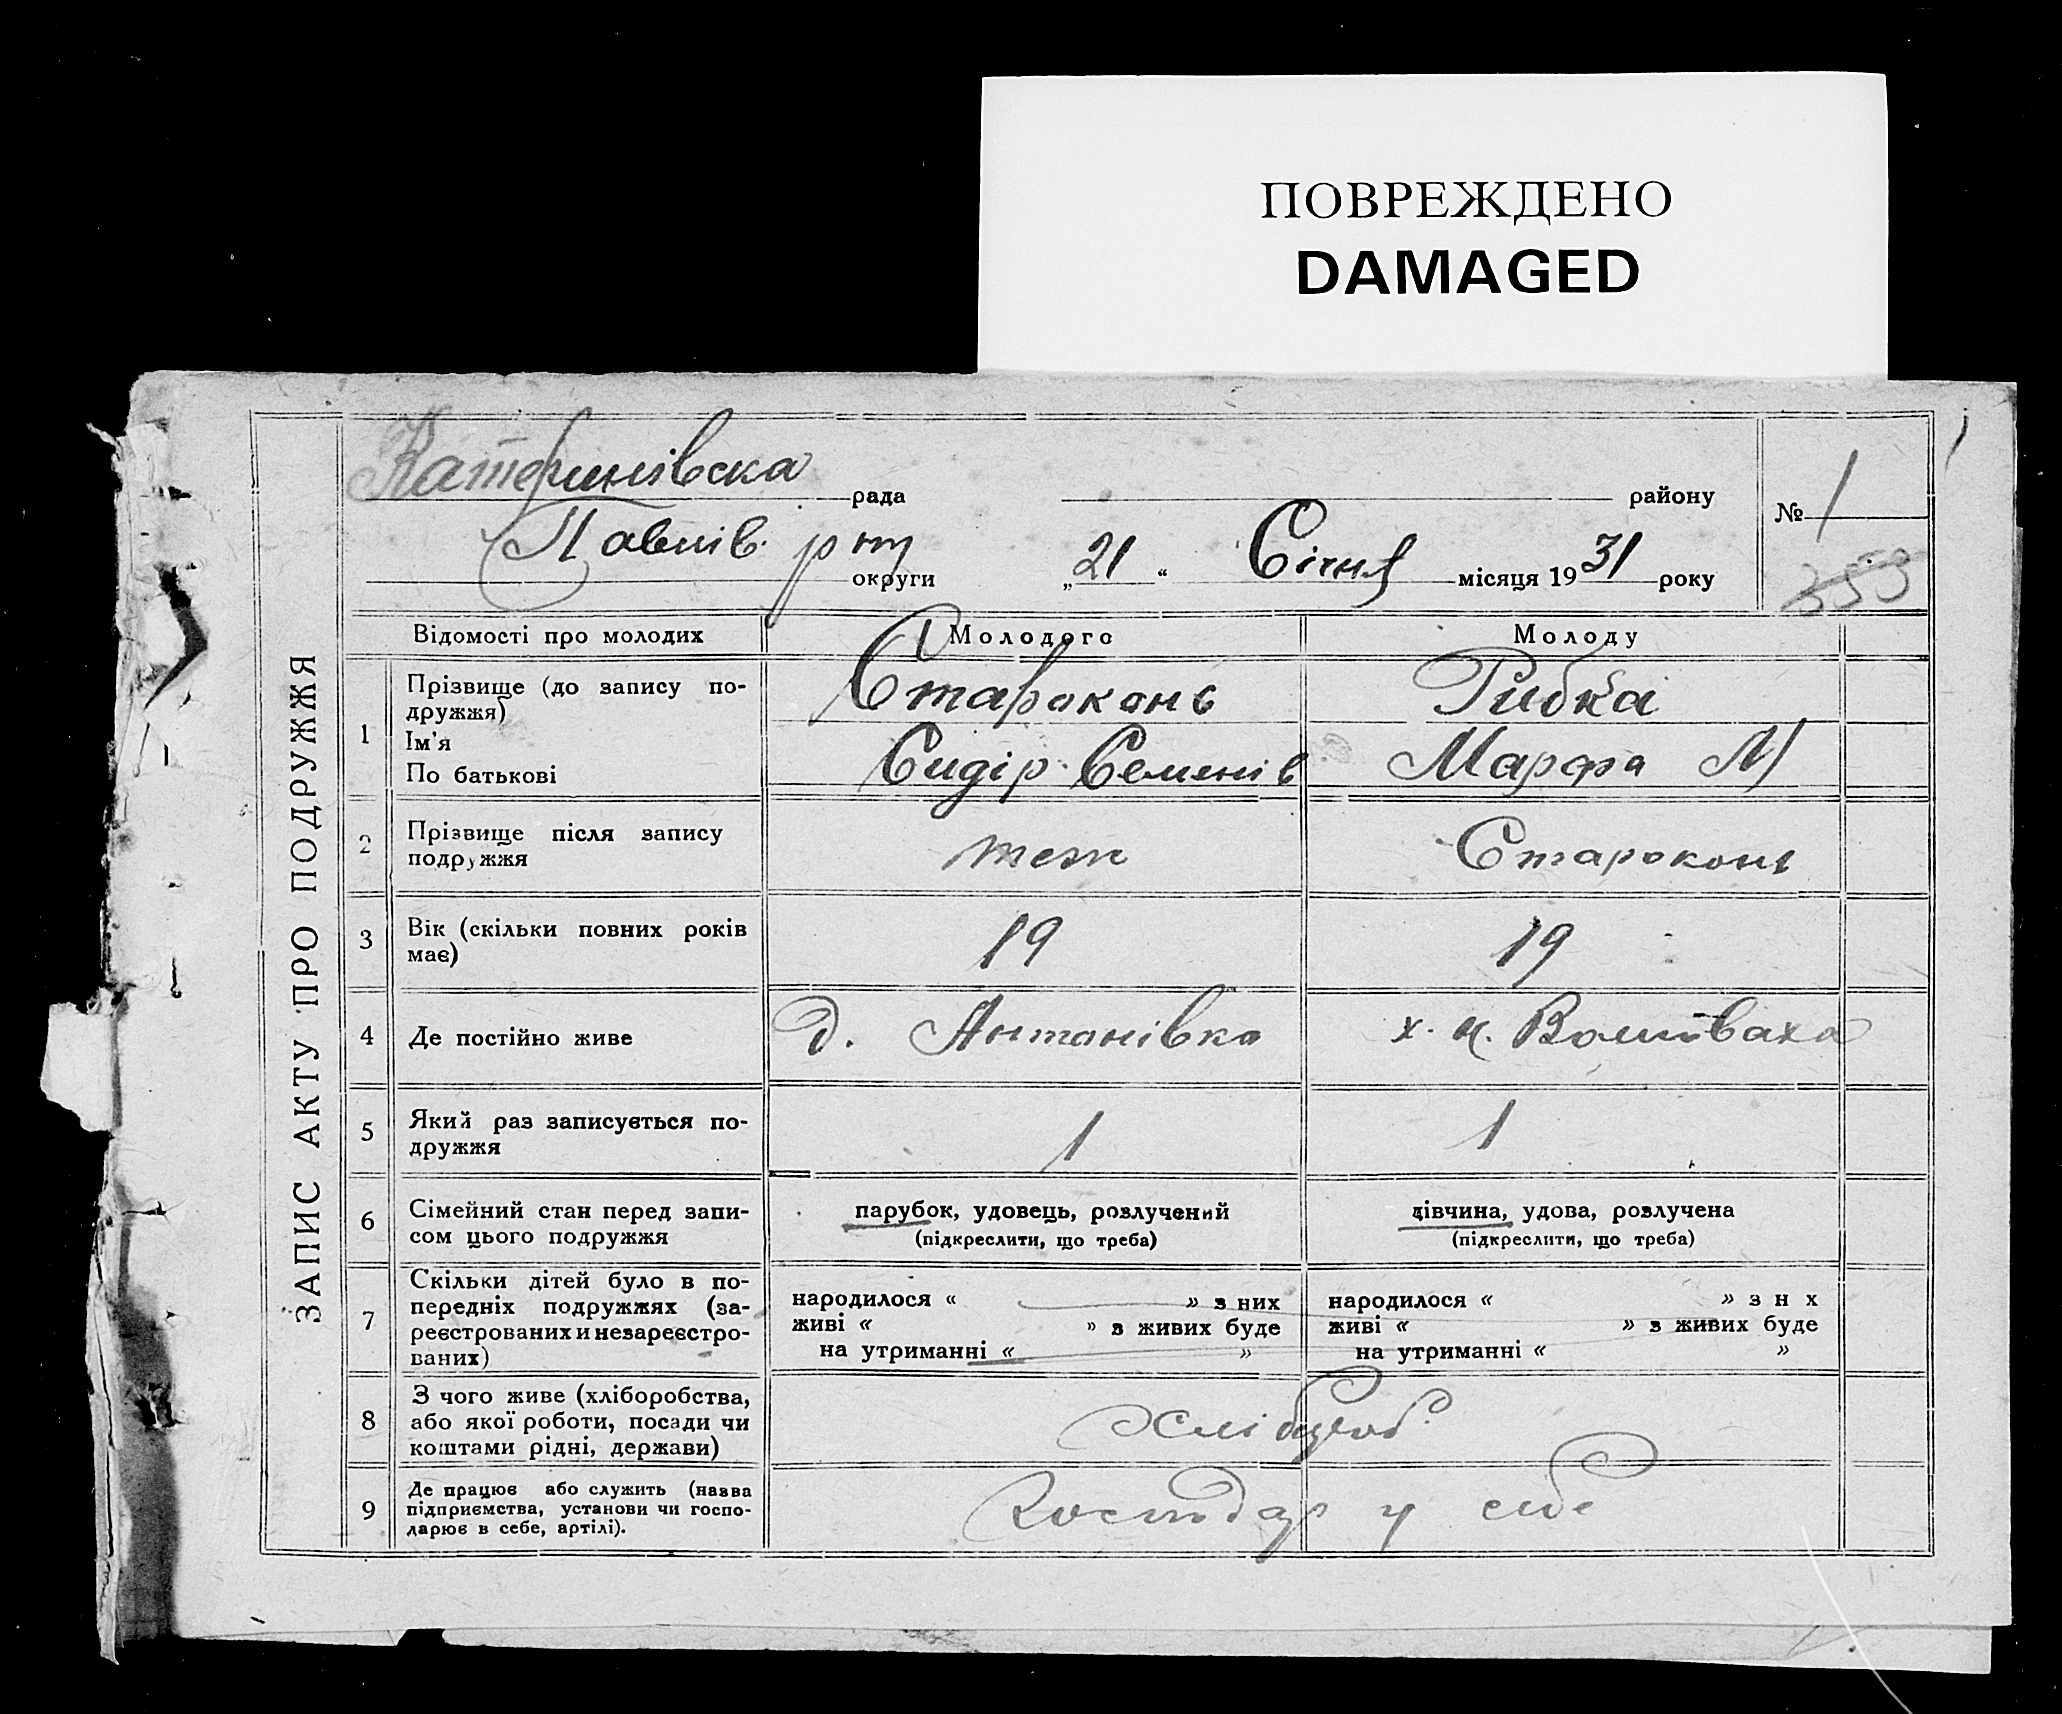 ПОВРЕЖДЕНО
DAMAGED
ЗАПИС АКТУ ПРО ПОДРУЖЖЯ
Катеринівска рада району
№ 1
Павлів. округи „21“ Січня місяця 1931 року
353
Відомості про молодих Молодого Молоду
1 Прізвище (до запису по-
дружжя) Староконь Рибка
Ім'я
По батькові Сидір Семенів Марфа М
2 Прізвище після запису
подружжя теж Староконь
3 Вік (скільки повних років
має) 19 19
4 Де постійно живе д. Антонівка х. н.
5 Який раз записується по-
дружжя 1 1
6 Сімейний стан перед запи-
сом цього подружжя
парубок, удовець, розлучений
(підкреслити, що треба)
дівчина, удова, розлучена
(підкреслити, що треба)
7 Скільки дітей було в по-
передніх подружжях (за-
реєстрованих и незареєстро-
ваних)
народилося « » з них
живі « » з живих буде
на утриманні « »
народилося « » з н х
живі « » з живих буде
на утриманні « »
8 З чого живе (хліборобства,
або якої роботи, посади чи
коштами рідні, держави)
Хлібороб.
9 Де працює або служить (назва
підприємства, установи чи госпо-
дарює в себе, артілі).
у себе